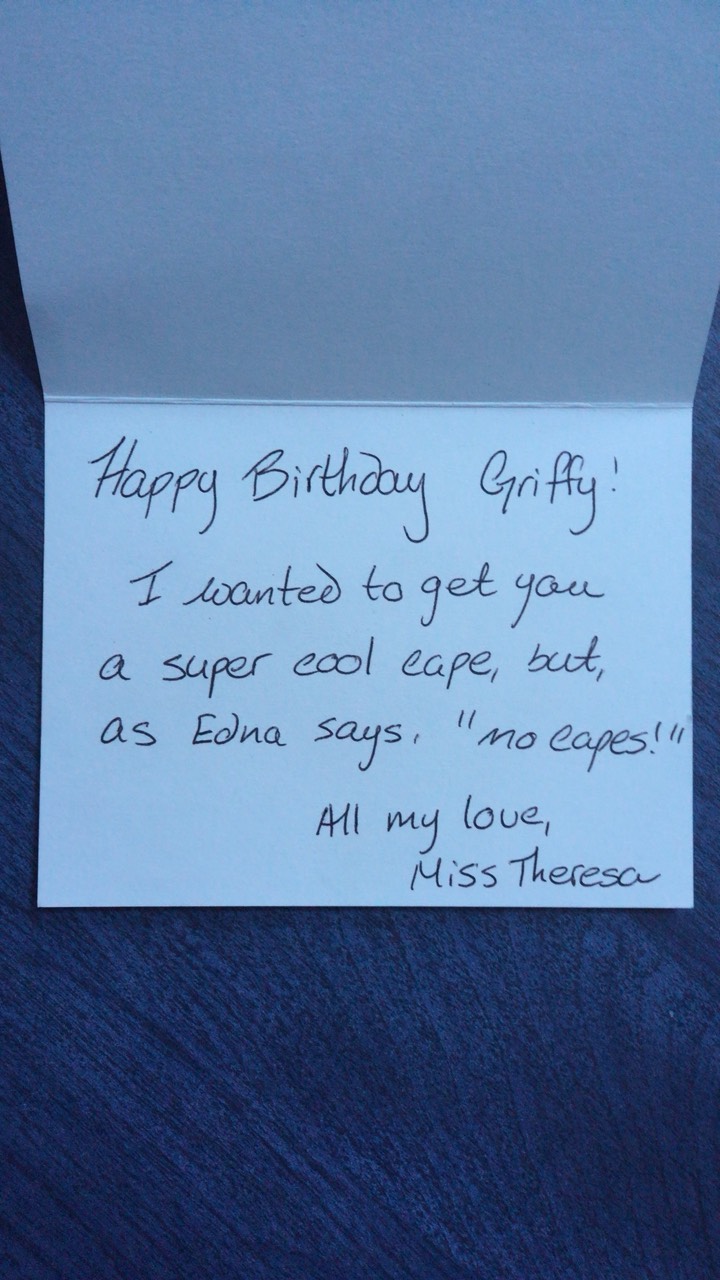 Happy Birthday Griffy!
I wanted to get you
a super cool cape, but,
as Edna says, "no capes!"
All my love,
Miss Theresa